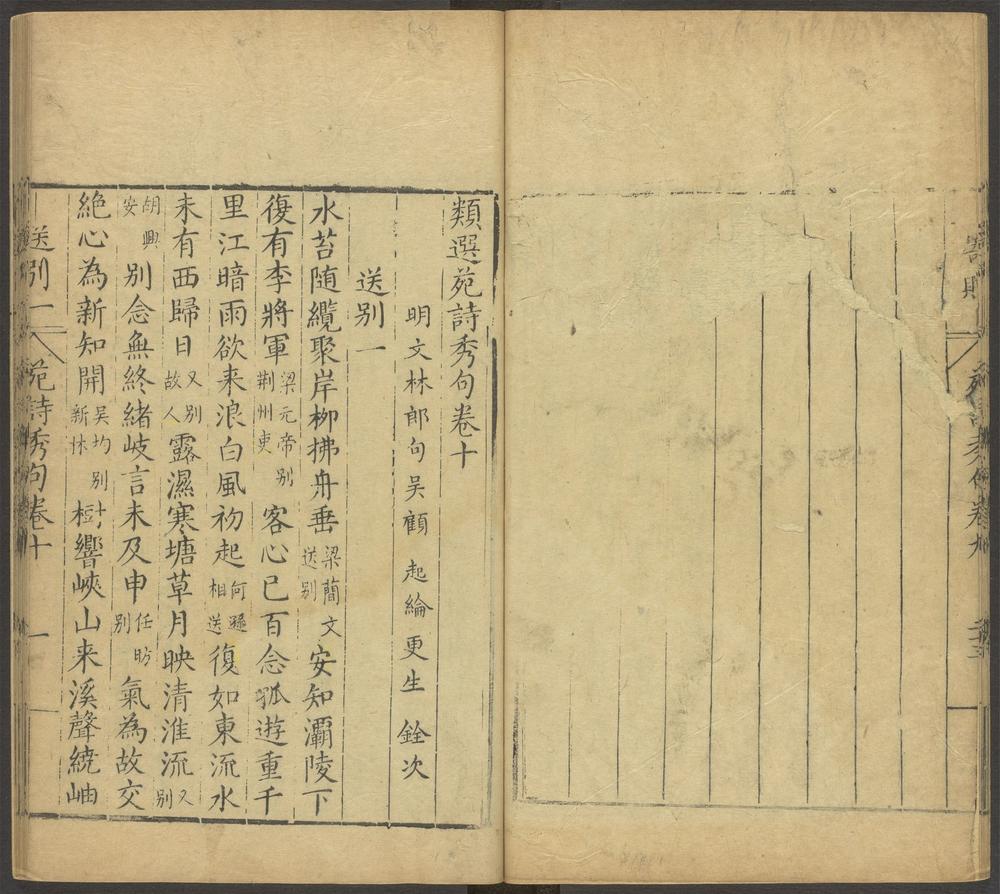 類選苑詩秀句卷十
明文林郎句吳顧起綸更生銓次
送別一
水苔随纜聚岸柳拂舟垂梁蕳文送別安知灞陵下
復有李將軍梁元帝別荆州吏客心已百念孤遊重千
里江暗雨欲来浪白風初起何遜相送復如東流水
未有西歸日又別故人露濕寒塘草月映清淮流又別
胡興安別念無終緒岐言未及申任昉別氣為故交
絶心為新知開吳均別新林樹響峽山来溪聲繞岫
送別一 苑詩秀句卷十 一